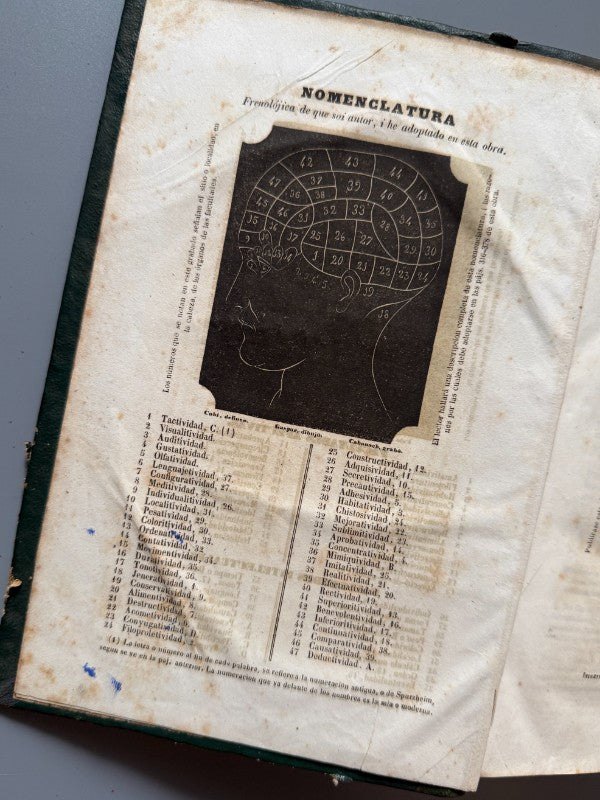 NOMENCLATURA
Frenolójica de que soi autor, i he adoptado en esta obra.
Los números que se notan en este grabado señalan el sitio o localidad, en
la cabeza, de los órganos de las facultades.
El lector hallará una descripcion completa de esta nomenclatura, i las razo-
nes por las cuales debo adoptarse en las pájs.
Cubí, definea. Gaspar, dibujo. Cabanach, grabó.
1 Tactividad, C. (1)
2 Visualitividad.
3 Auditividad.
4 Gustatividad.
5 Olfatividad.
6 Lenguajetividad, 37.
7 Configuratividad, 27.
8 Meditividad, 28.
9 Individualitividad, 26.
10 Localitividad, 31.
11 Pesatividad, 29.
12 Coloritividad, 30.
13 Ordenatividad, 33.
14 Contatividad, 32.
15 Movimentividad, 35.
16 Duratividad, 34.
17 Tonotividad, 36.
18 Jeneratividad, 1.
19 Conservatividad, P.
20 Alimentividad, 8.
21 Destructividad, 7.
22 Acometividad, 6.
23 Conyugatividad, D.
24 Filoprolectividad, 2.
25 Constructividad, 12.
26 Adquisividad, 11.
27 Secretividad, 10.
28 Precautividad, 15.
29 Adhesividad, 5.
30 Habitatividad, 3.
31 Chistosividad, 24.
32 Mejoratividad, 22.
33 Sublimitividad, 23.
34 Aprobatividad, 14.
35 Concentratividad, 4.
36 Mimiquividad, B.
37 Imitatividad, 25.
38 Realitividad, 21.
39 Efectuatividad, 20.
40 Rectividad, 19.
41 Superioritividad, 13.
42 Benevolentividad, 16.
43 Inferioritividad, 17.
44 Continuatividad, 18.
45 Comparatividad, 38.
46 Causatividad, 39.
47 Deductividad, A.
(1) La letra o número al fin de cada palabra, se refiere a la numeracion antigua, o de Spurzheim,
segun se ve en la páj. anterior. La numeracion que va delante de los nombres es la mia o moderna.